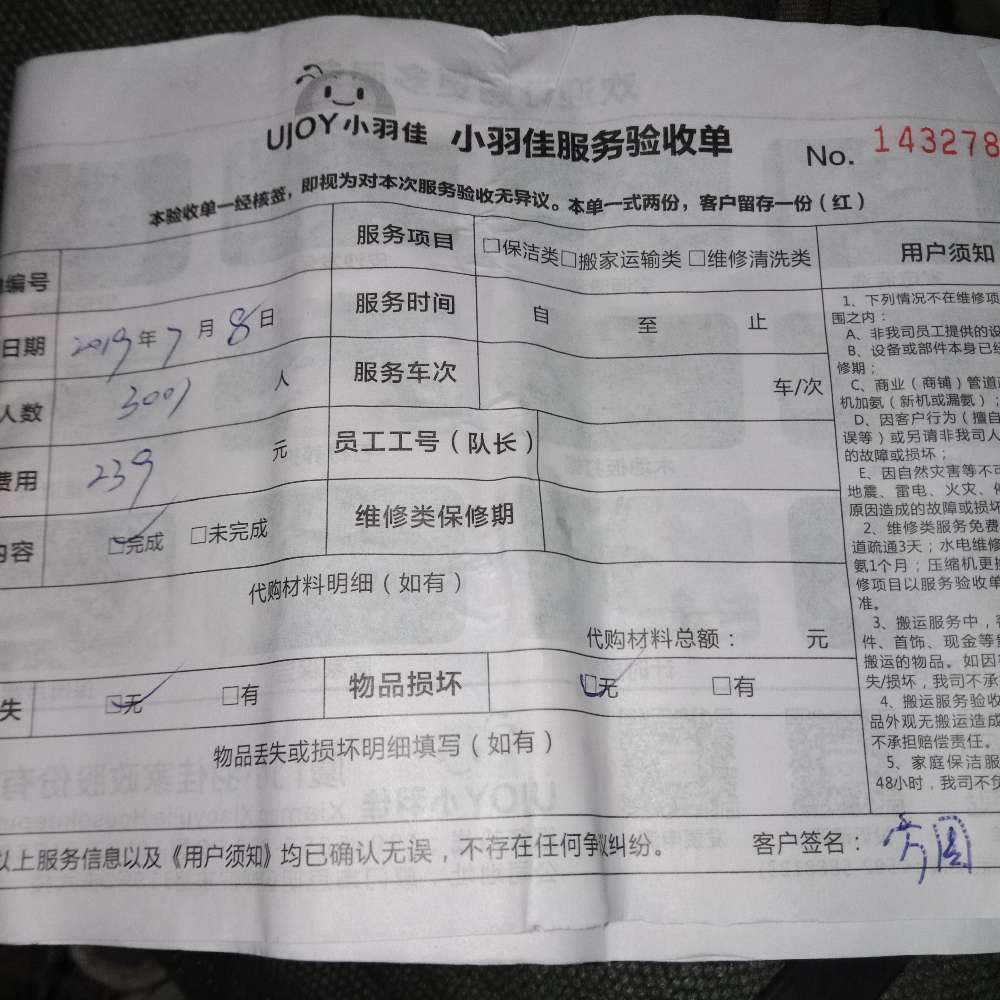 UJOY小羽佳 小羽佳服务验收单 No. 143278
本验收单一经核签，即视为对本次服务验收无异议。本单一式两份，客户留存一份（红）
编号 服务项目 □保洁类□搬家运输类 □维修清洗类
日期 2019年7月8日 服务时间 自 至 止
人数 3001 人 服务车次 车/次
费用 239 元 员工工号（队长）
内容 □完成 □未完成 维修类保修期
代购材料明细（如有）
代购材料总额： 元
失 □无 □有 物品损坏 □无 □有
物品丢失或损坏明细填写（如有）
以上服务信息以及《用户须知》均已确认无误，不存在任何争议纠纷。 客户签名：
用户须知
1、下列情况不在维修项
围之内：
A、非我司员工提供的设
B、设备或部件本身已经
修期；
C、商业（商铺）管道
机加氨（新机或漏氨）；
D、因客户行为（擅自
误等）或另请非我司人
的故障或损坏；
E、因自然灾害等不可
地震、雷电、火灾、
原因造成的故障或损坏
2、维修类服务免费
道疏通3天；水电维修
氨1个月；压缩机更换
修项目以服务验收单
准。
3、搬运服务中，
件、首饰、现金等
搬运的物品。如因
失/损坏，我司不承
4、搬运服务验收
品外观无搬运造成
不承担赔偿责任。
5、家庭保洁服
48小时，我司不负